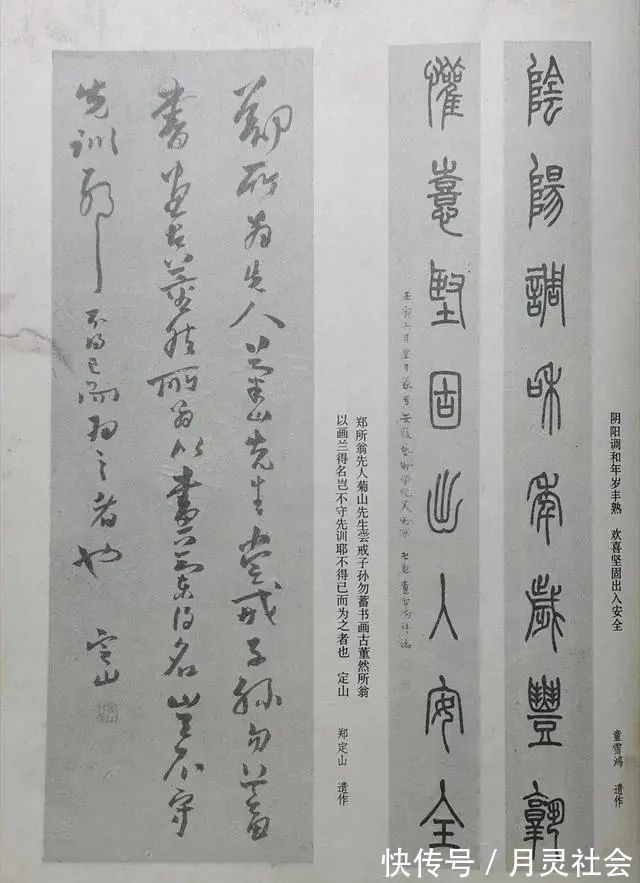 阴阳调和年岁丰熟 欢喜坚固出入安全
童雪鸿 遗作
陰陽調和年歲豐孰
懽憙堅固出入安全
郑所翁先人菊山先生尝戒子孙勿蓄书画古董然所翁
以画兰得名岂不守先训耶不得已而为之者也 定山
郑定山 遗作
鄭所翁先人菊山先生嘗戒子孫勿蓄
書畫古董然所翁以畫蘭得名豈不守
先訓耶不得已而為之者也 定山
快传号/月灵社会